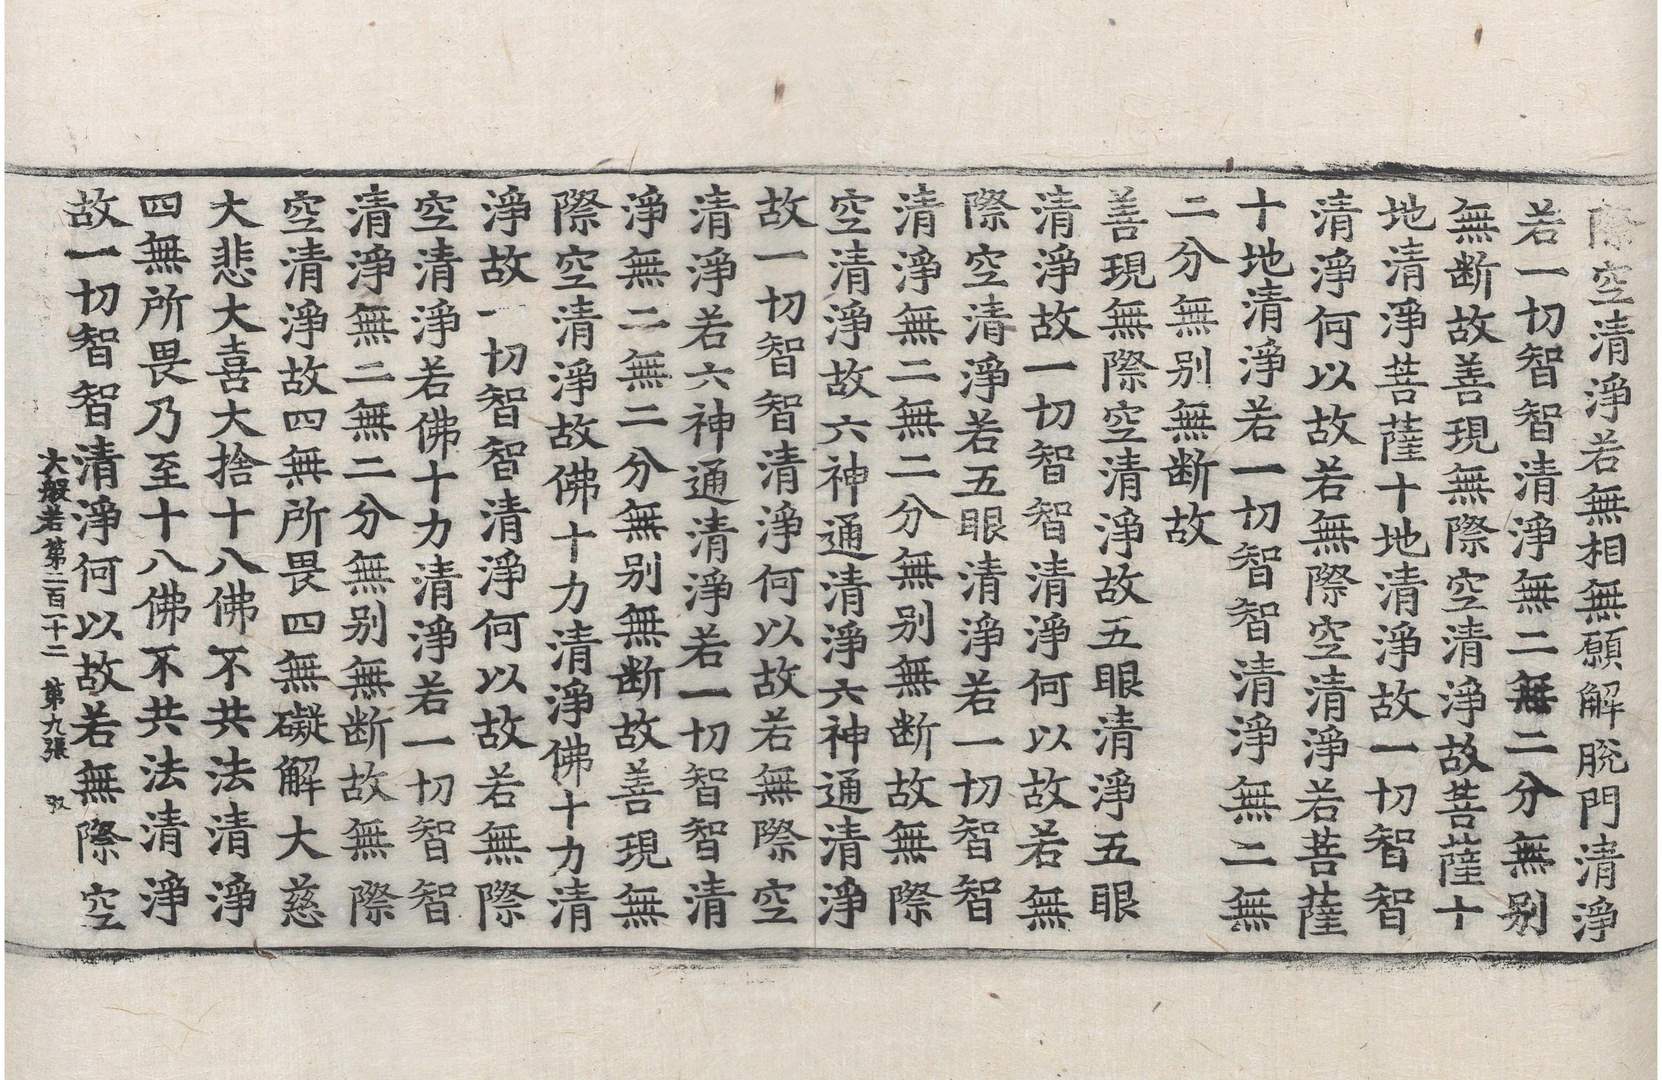 際空清淨若無相無願解脫門清淨
若一切智智清淨無二無二分無别
無断故善現無際空清淨故菩薩十
地清淨菩薩十地清淨故一切智智
清淨何以故若無際空清淨若菩薩
十地清淨若一切智智清淨無二無
二分無别無断故
善現無際空清淨故五眼清淨五眼
清淨故一切智智清淨何以故若無
際空清淨若五眼清淨若一切智智
清淨無二無二分無别無断故無際
空清淨故六神通清淨六神通清淨
故一切智智清淨何以故若無際空
清淨若六神通清淨若一切智智清
淨無二無二分無别無断故善現無
際空清淨故佛十力清淨佛十力清
淨故一切智智清淨何以故若無際
空清淨若佛十力清淨若一切智智
清淨無二無二分無别無断故無際
空清淨故四無所畏四無礙解大慈
大悲大喜大捨十八佛不共法清淨
四無所畏乃至十八佛不共法清淨
故一切智智清淨何以故若無際空
大般若第二百一十二 第九張 収